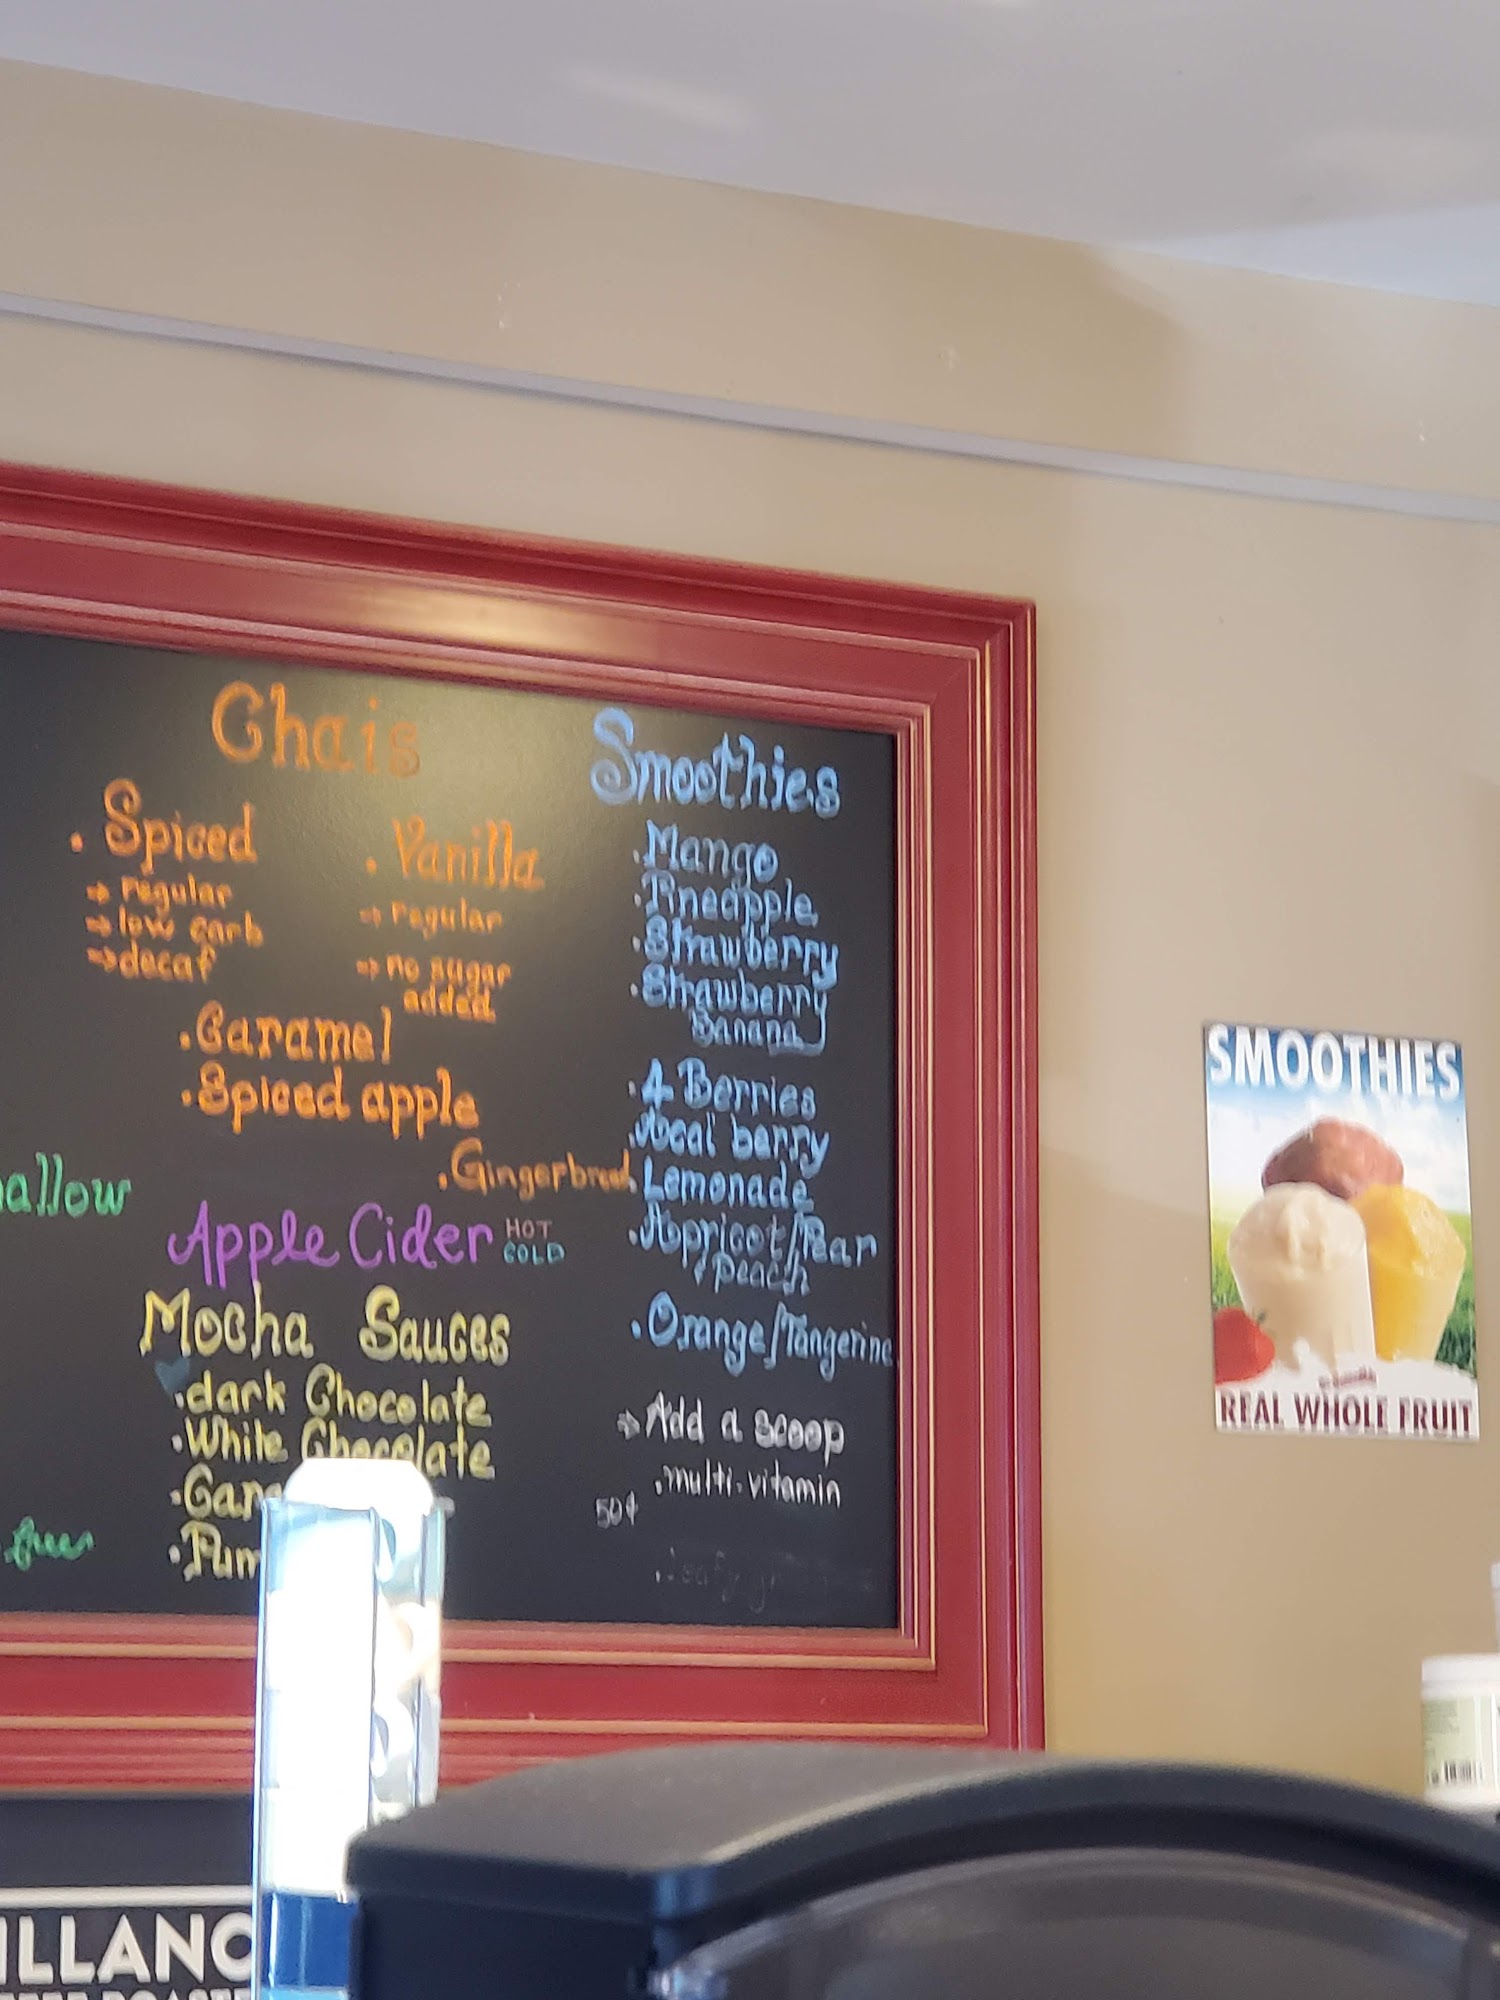 Chais
. Spiced
→ regular
→ low carb
→ decaf
. Vanilla
→ regular
→ no sugar
added
. Caramel
. Spiced apple
. Gingerbread
allow
Apple Cider HOT
COLD
Mocha Sauces
. dark Chocolate
. White Chocolate
. Car
. Pum
free
Smoothies
. Mango
. Pineapple
. Strawberry
. Strawberry
Banana
. 4 Berries
. Acai berry
. Lemonade
. Apricot/Pear
Peach
. Orange/Tangerine
→ Add a scoop
. multi-vitamin
50¢
SMOOTHIES
REAL WHOLE FRUIT
ILLANO